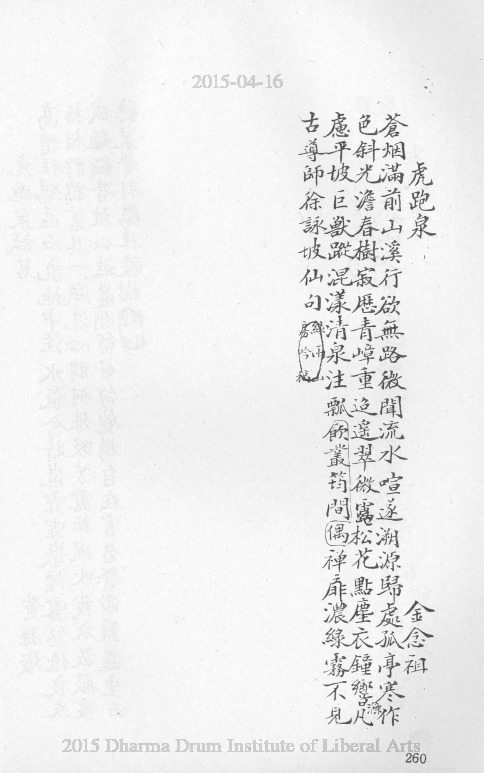 2015-04-16
虎跑泉
金念祖
蒼烟滿前山溪行欲無路微聞流水喧遂溯源歸處孤亭寒作
色斜光澹春樹寂歷青嶂重迢遥翠微露松花點塵衣鐘響滌凡
慮平坡巨獸蹤混漾清泉注瓢飲叢筠間偶禅扉濃綠霧不見
古導師徐詠坡仙句
2015 Dharma Drum Institute of Liberal Arts
260